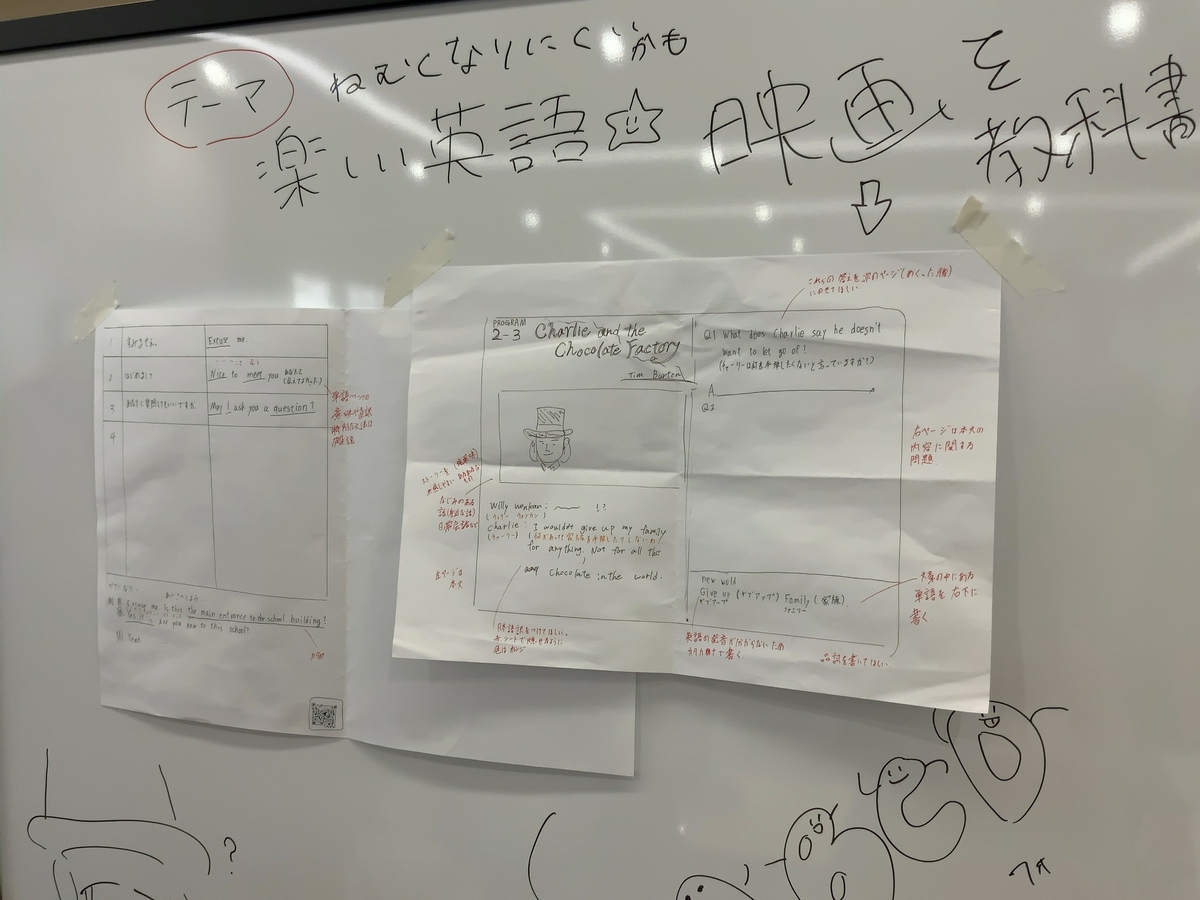 テーマ
ねむくなりにくいかも
楽しい英語
映画を
教科書
1 すみません。 Excuse me.
2 はじめまして Nice to meet you
3 May I ask you a question?
4
Excuse me. Is this the main entrance to the school building?
Yes, it is. Are you new to this school?
PROGRAM
2-3 Charlie and the
Chocolate Factory
Tim Burton
Willy Wonkan: !?
(ウィリー ウォンカン)
Charlie: I wouldn't give up my family
(チャーリー)
for anything. Not for all the
Chocolate in the world.
Q1 What does Charlie say he doesn't
want to let go of?
(チャーリーは何を手放したくないと言っていますか?)
A.
Q2
new wold
Give up (ギブアップ) Family (家族)
ファミリー
これらの答えを次のページ(めくった後)
にのせてほしい
右ページは本文の
内容に関する
問題
本文の中にある
単語を右下に
書く
品詞を書いてほしい
英語の発音が分からないため
カタカナで書く
日本語訳をつけてほしい。
赤シートで隠せるように
色はオレンジ
左ページは
本文
なじみのある
日常会話など
?